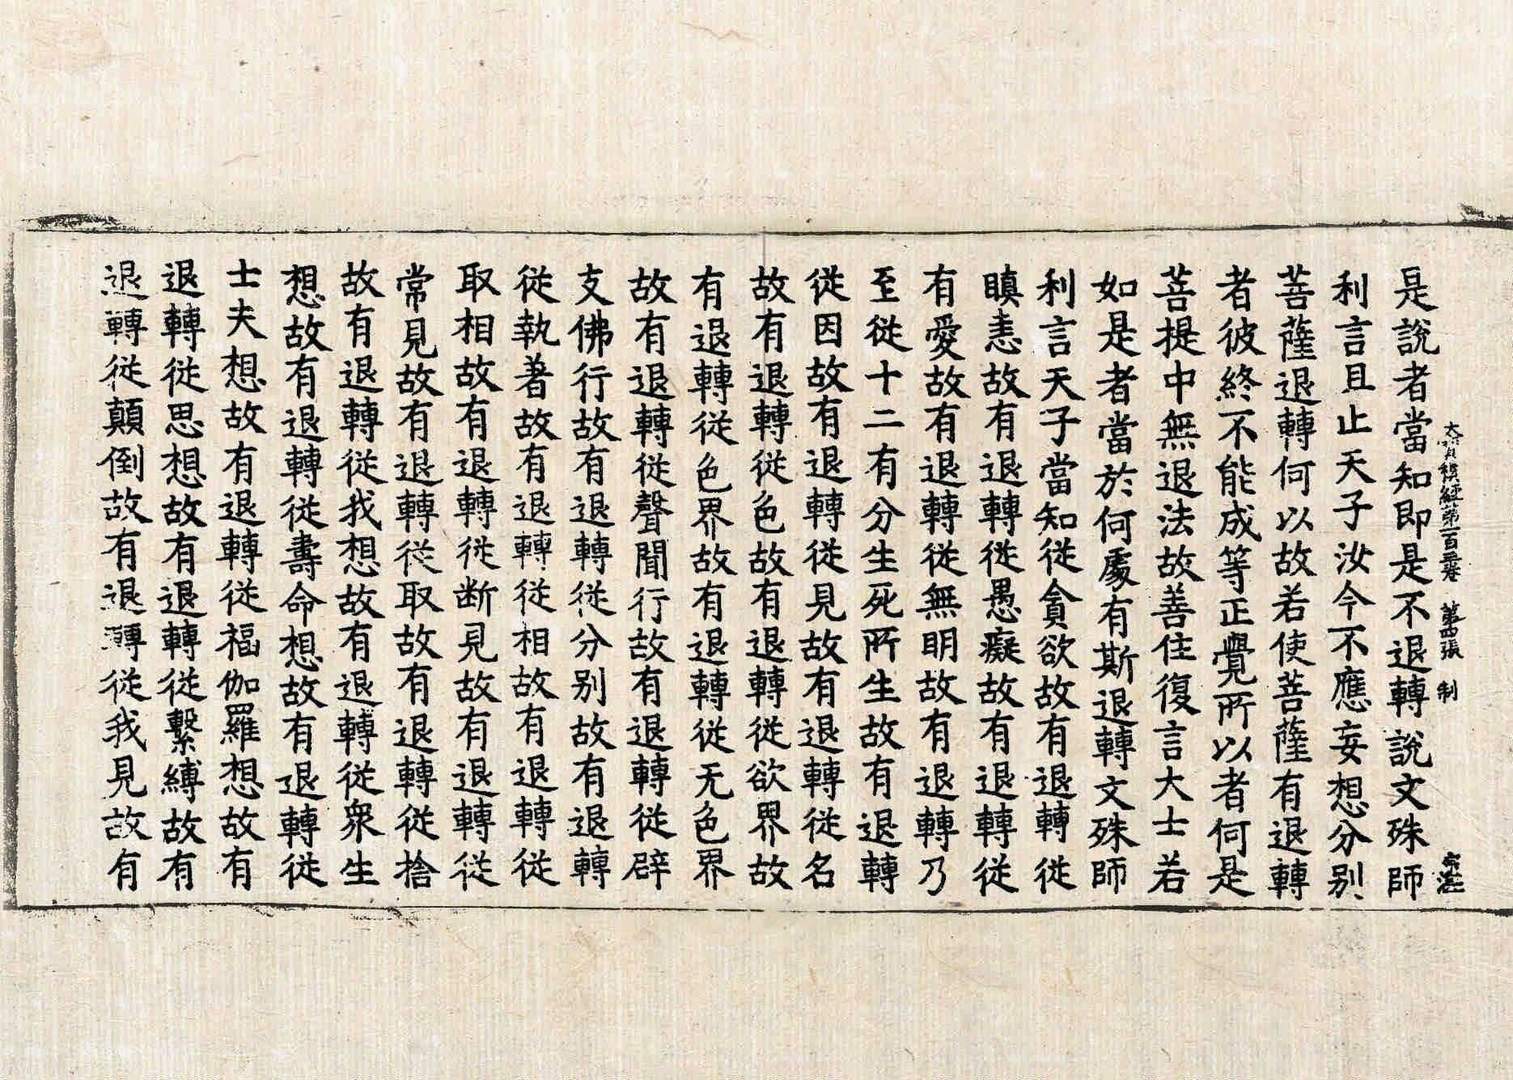 大寶積經第一百三卷 第四張 制
是說者當知即是不退轉說文殊師
利言且止天子汝今不應妄想分別
菩薩退轉何以故若使菩薩有退轉
者彼終不能成等正覺所以者何是
菩提中無退法故善住復言大士若
如是者當於何處有斯退轉文殊師
利言天子當知從貪欲故有退轉從
瞋恚故有退轉從愚癡故有退轉從
有愛故有退轉從無明故有退轉乃
至從十二有分生死所生故有退轉
從因故有退轉從見故有退轉從名
故有退轉從色故有退轉從欲界故
有退轉從色界故有退轉從无色界
故有退轉從聲聞行故有退轉從辟
支佛行故有退轉從分別故有退轉
從執著故有退轉從相故有退轉從
取相故有退轉從断見故有退轉從
常見故有退轉從取故有退轉從捨
故有退轉從我想故有退轉從衆生
想故有退轉從壽命想故有退轉從
士夫想故有退轉從福伽羅想故有
退轉從思想故有退轉從繫縛故有
退轉從顛倒故有退轉從我見故有